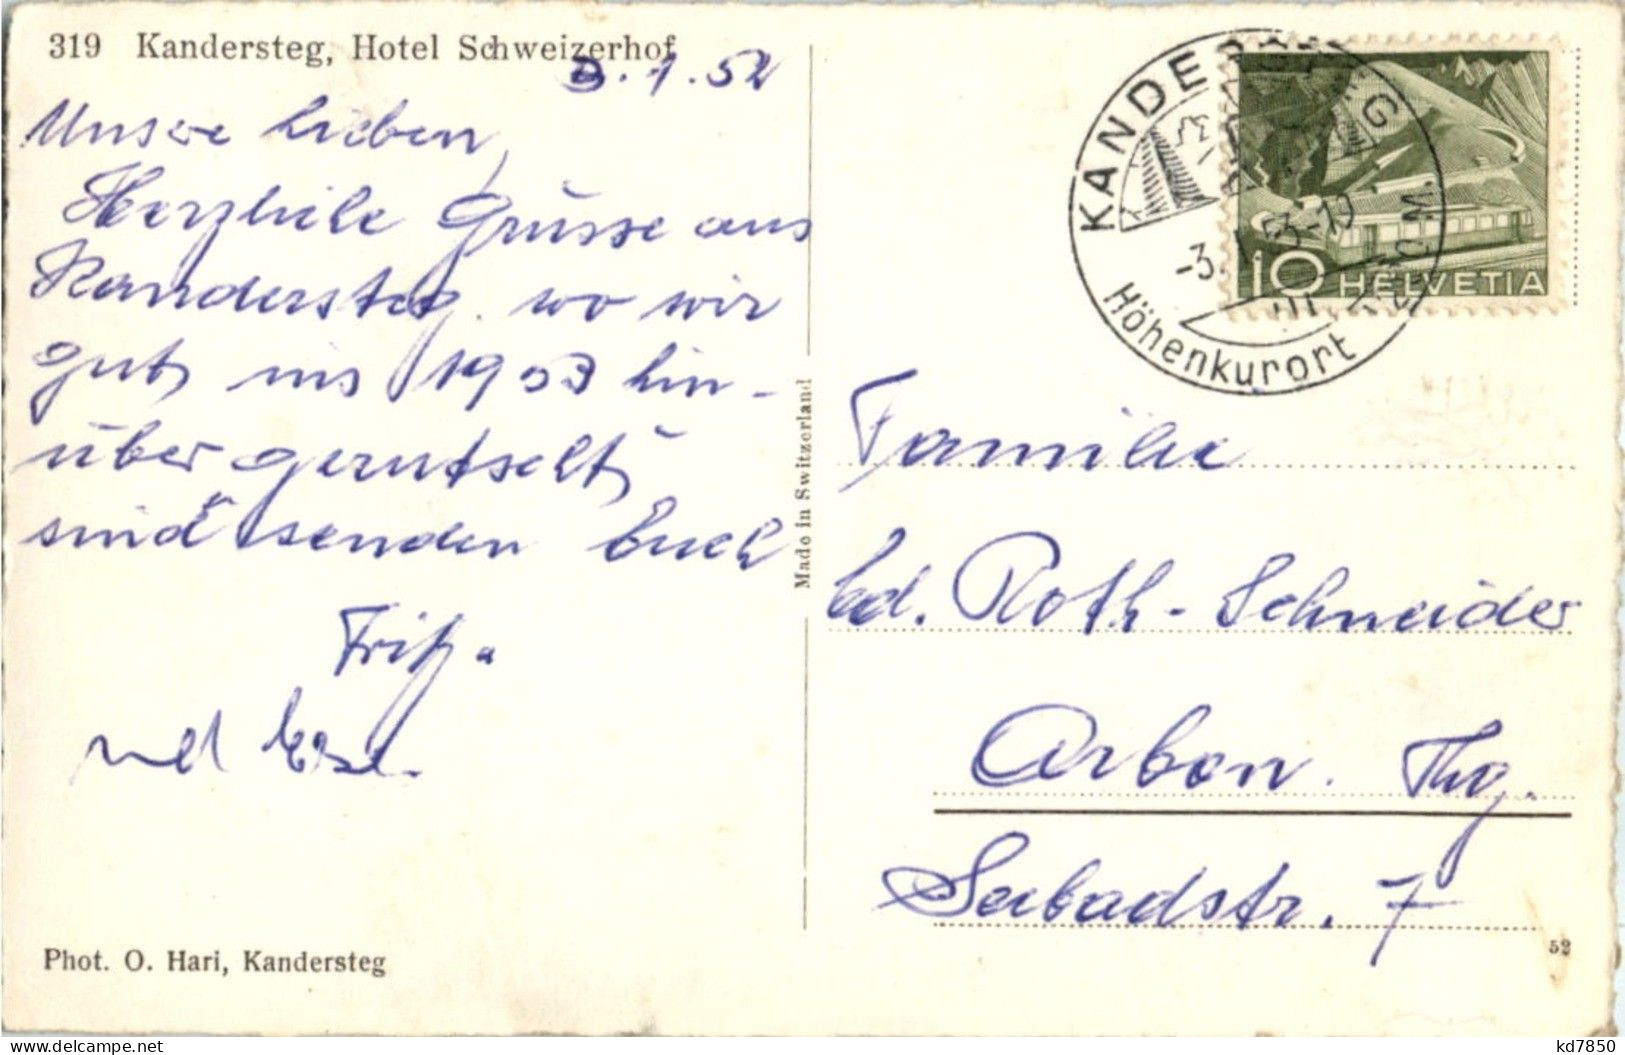 319 Kandersteg, Hotel Schweizerhof
3.1.52
Unsere Lieben,
Herzliche Grüsse aus
Kandersteg. wo wir
gut ins 1953 hin-
über gerutscht
sind senden Euch
Fritz.
und
Phot. O. Hari, Kandersteg
Made in Switzerland
KANDERSTEG
-3.
Höhenkurort
10 HELVETIA
Familie
Ed. Roth-Schneider
Arbon. Thg.
Seebadstr. 7
52
kd7850